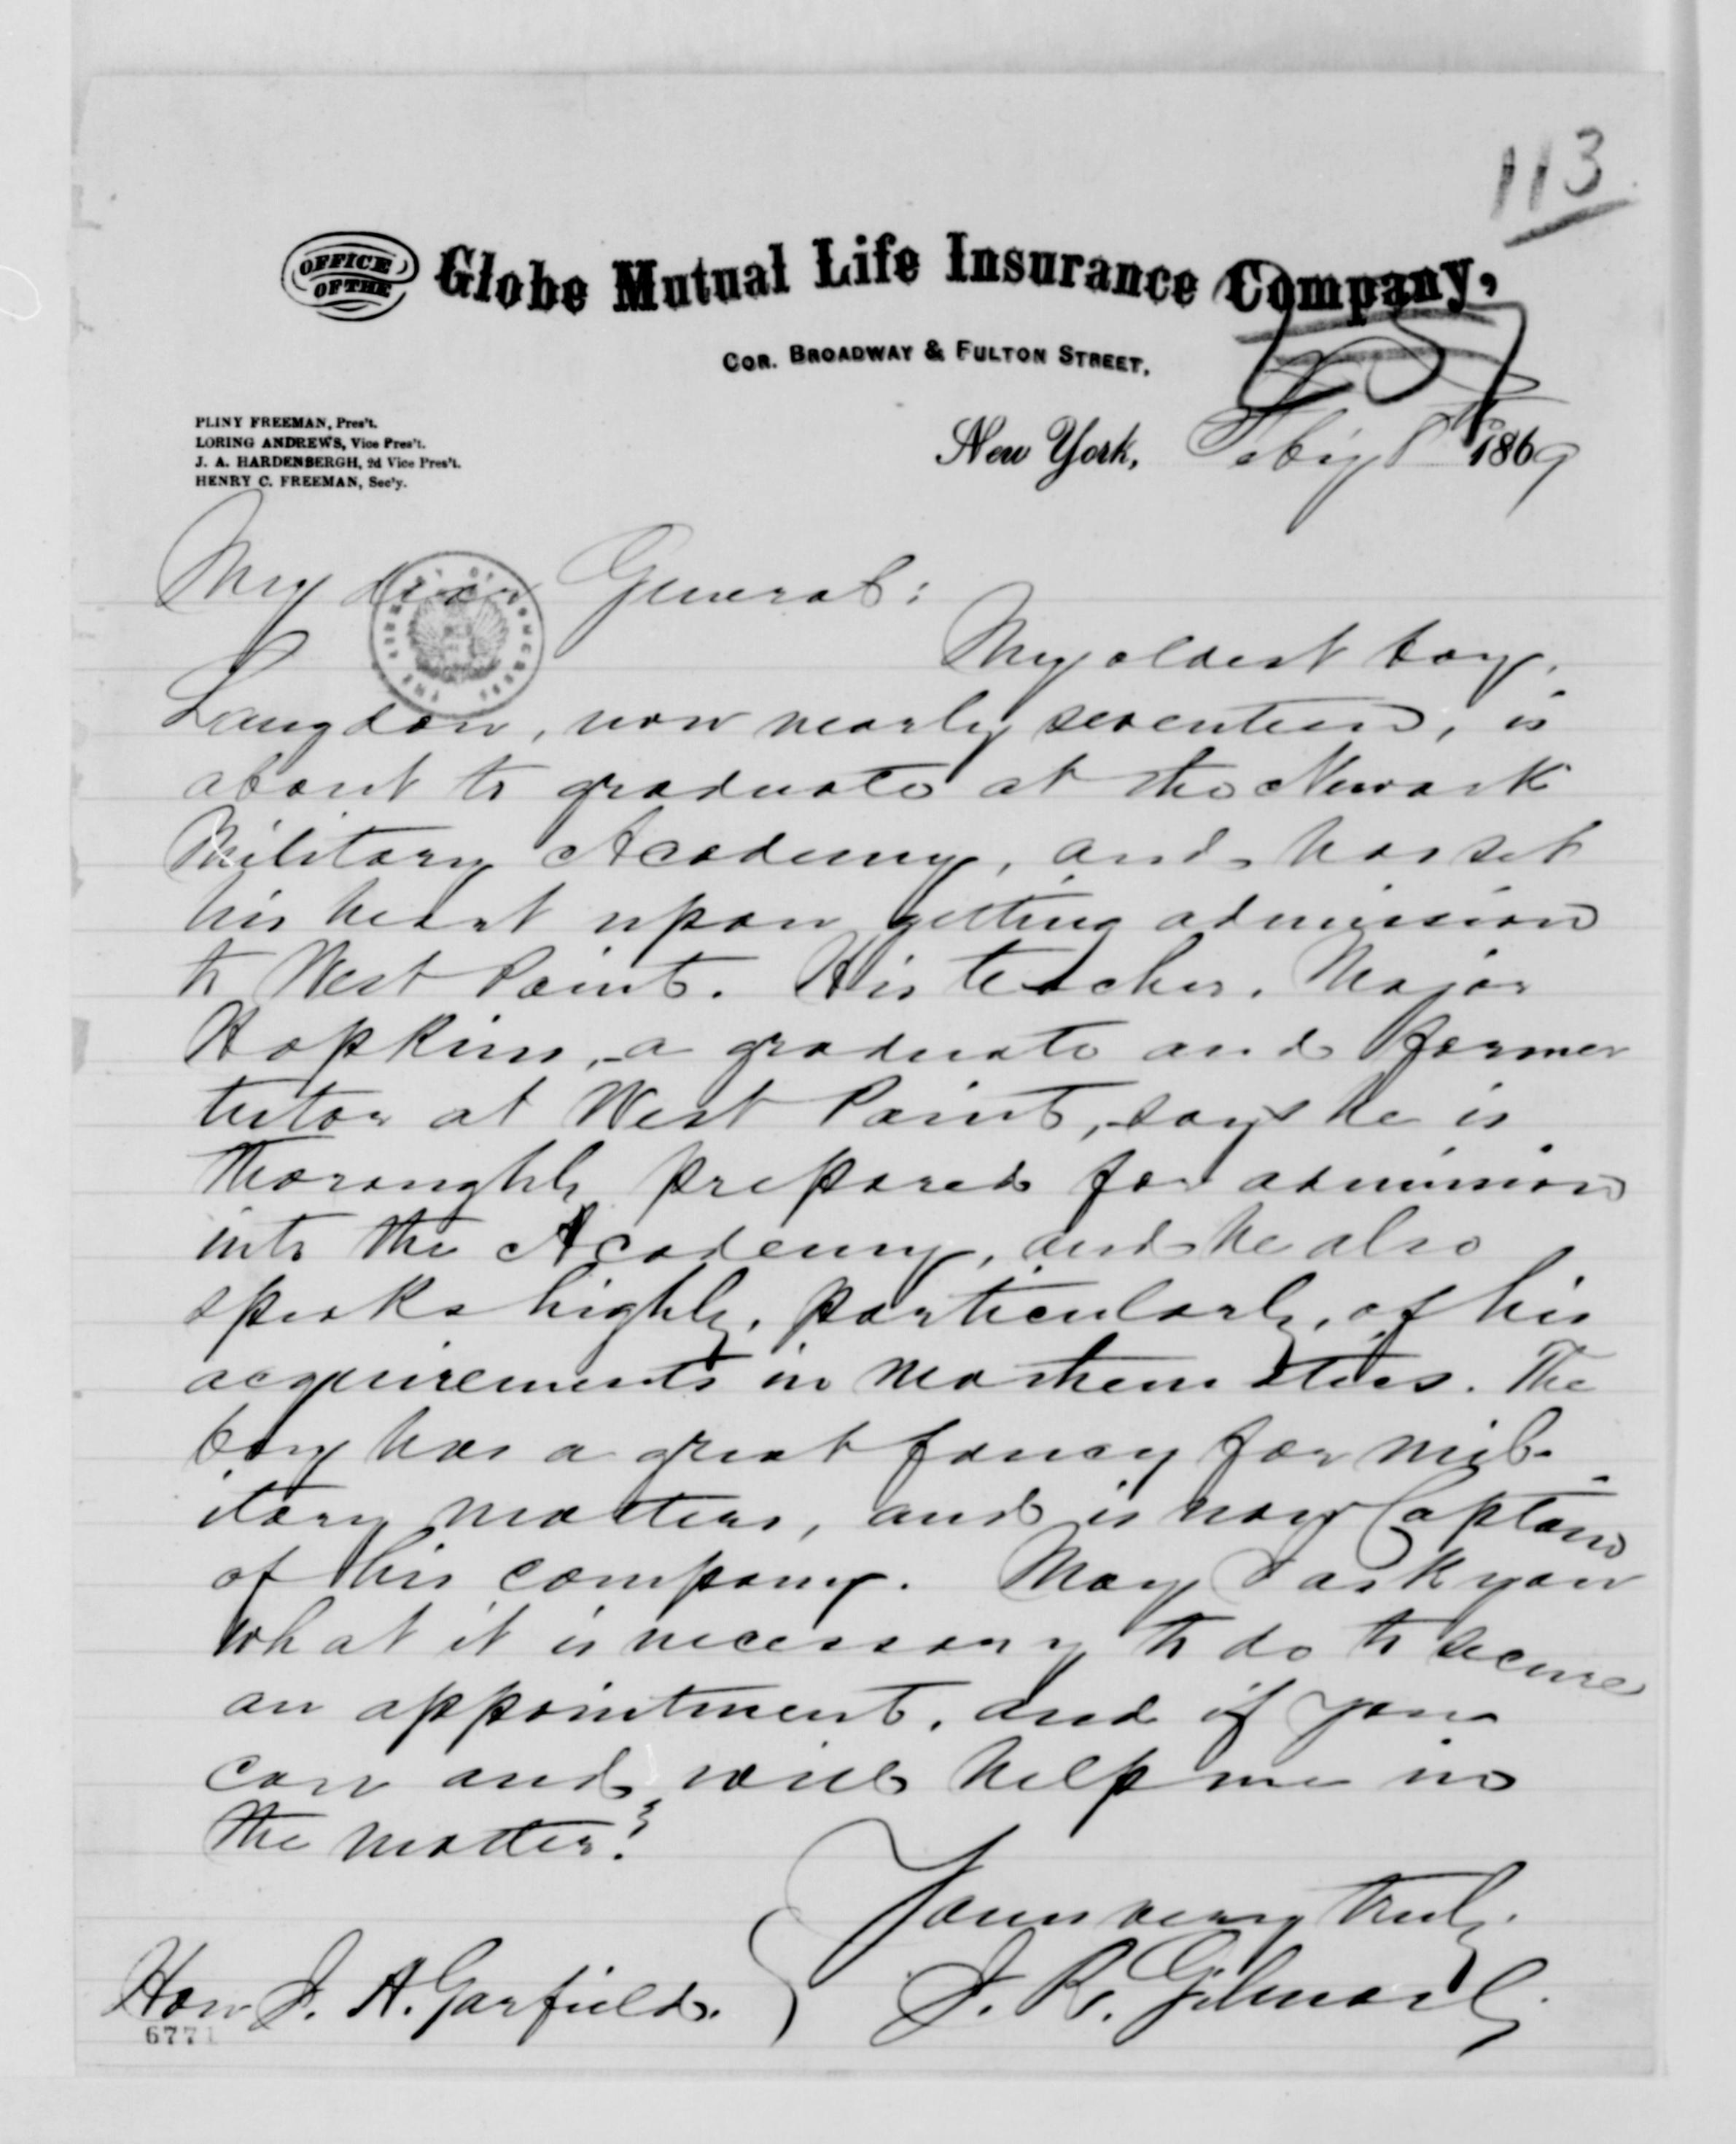 113
OFFICE OF THE Globe Mutual Life Insurance Company,
COR. BROADWAY & FULTON STREET,
PLINY FREEMAN, Pres't.
LORING ANDREWS, Vice Pres't.
J. A. HARDENBERGH, 2d Vice Pres't.
HENRY C. FREEMAN, Sec'y.
New York, Feby 8th 1869
My dear General:
My oldest boy,
Langdon, now nearly seventeen, is
about to graduate at the Newark
Military Academy, and has set
his heart upon getting admission
to West Point. His teacher, Major
Hopkins, a graduate and former
tutor at West Point, says he is
thoroughly prepared for admission
into the Academy, and he also
speaks highly, particularly, of his
acquirements in mathematics. The
boy has a great fancy for mil-
itary matters, and is now Captain
of his company. May I ask you
what it is necessary to do to secure
an appointment, and if you
can and will help me in
the matter?
Yours very truly,
J. R. Gilmore
Hon J. A. Garfield.
6771